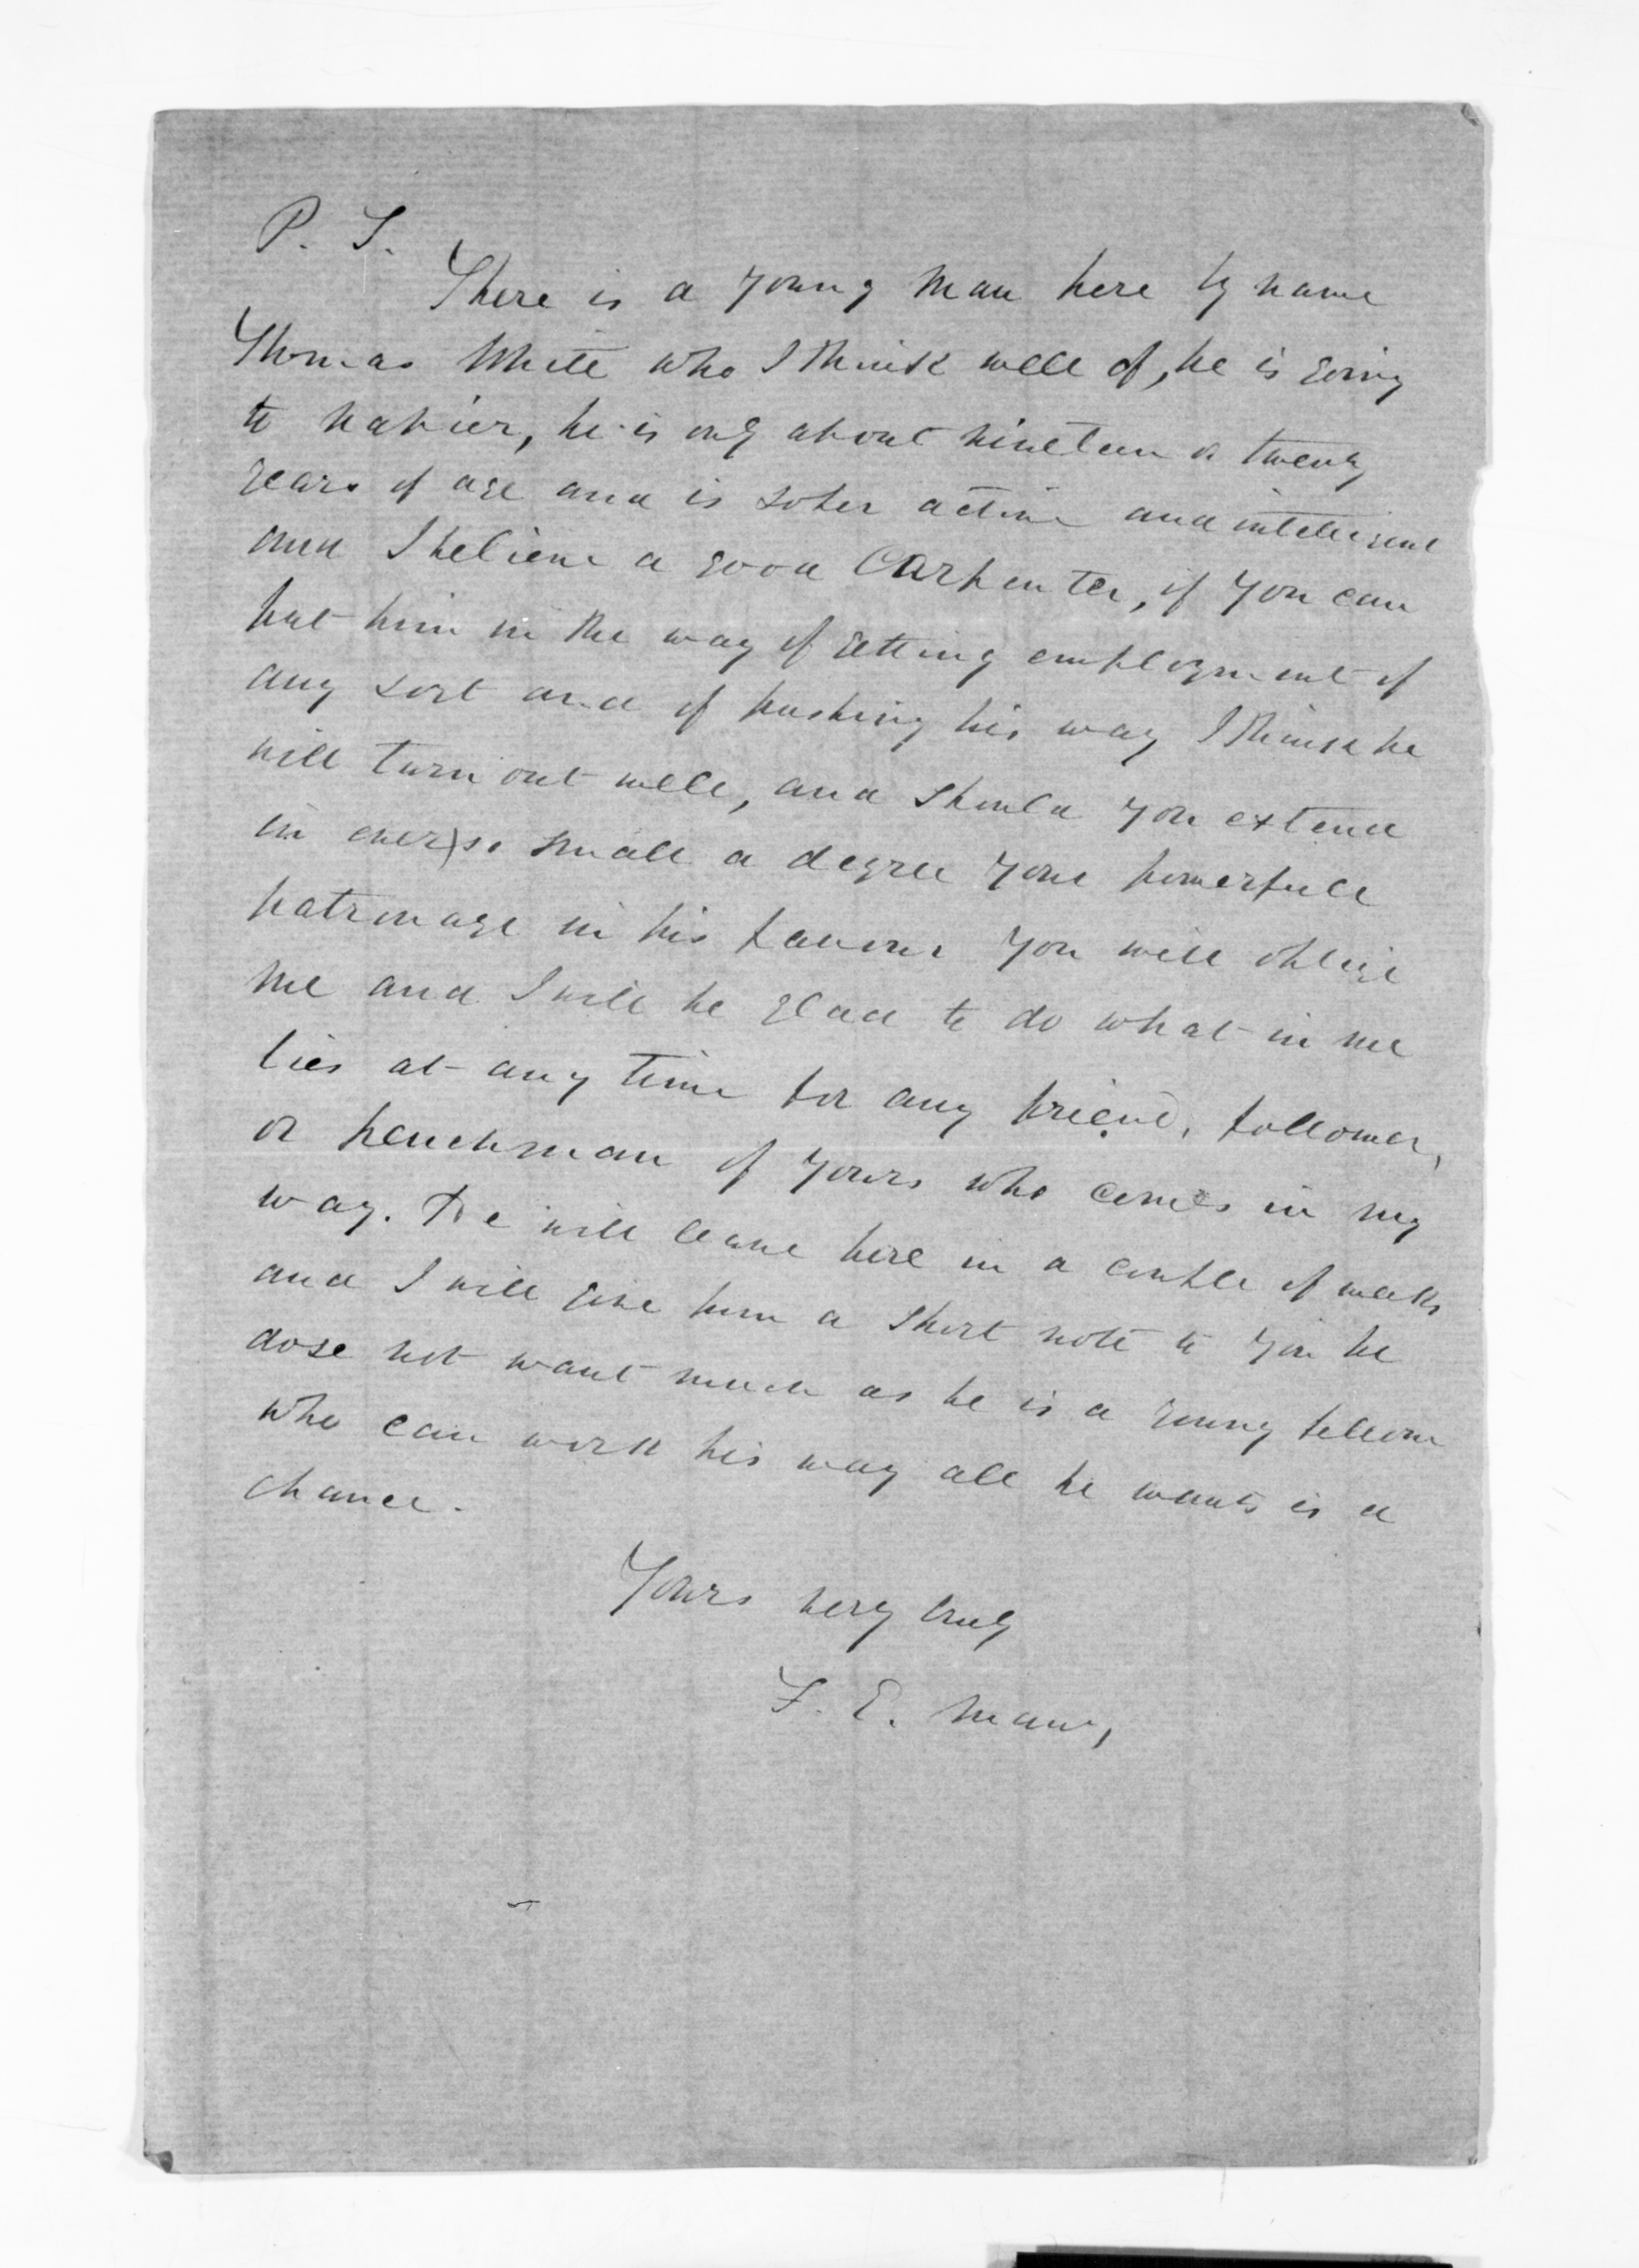 P. S.
There is a young man here by name
Thomas White who I think well of, he is going
to Napier, he is only about nineteen or twenty
years of age and is sober active and intelligent
and I believe a good Carpenter, if you can
put him in the way of getting employment of
any sort and of pushing his way I think he
will turn out well, and should you extend
in ever so small a degree your powerfull
patronage in his favour you will oblige
me and I will be glad to do what in me
lies at any time for any friend, follower,
or henchman of yours who comes in my
way. He will leave here in a couple of weeks
and I will give him a short note to you he
dose not want much as he is a young fellow
who can work his way all he wants is a
chance.
Yours very truly
F. E. Maw,